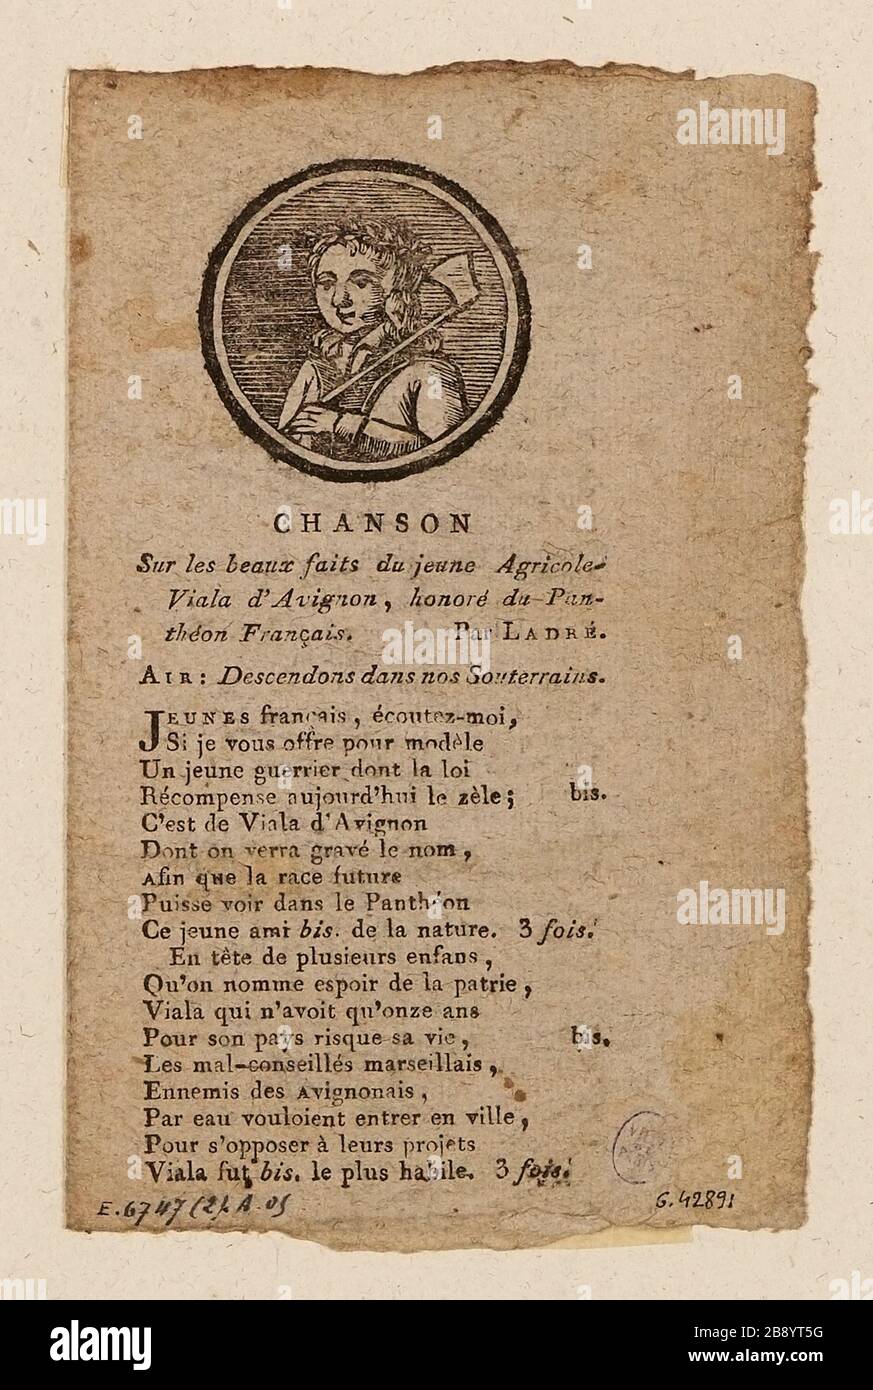 CHANSON
Sur les beaux faits du jeune Agricole-
Viala d'Avignon, honoré du Pan-
théon Français. Par LADRÉ.
AIR: Descendons dans nos Souterrains.
JEUNES français, écoutez-moi,
Si je vous offre pour modèle
Un jeune guerrier dont la loi
Récompense aujourd'hui le zèle; bis.
C'est de Viala d'Avignon
Dont on verra gravé le nom,
Afin que la race future
Puisse voir dans le Panthéon
Ce jeune ami bis. de la nature. 3 fois.
En tête de plusieurs enfans,
Qu'on nomme espoir de la patrie,
Viala qui n'avoit qu'onze ans
Pour son pays risque sa vie, bis.
Les mal-conseillés marseillais,
Ennemis des Avignonais,
Par eau vouloient entrer en ville,
Pour s'opposer à leurs projets
Viala fut bis. le plus habile. 3 fois.
E.6747(2). A.05 G.42891
alamy
Image ID: 2B8YT5G
www.alamy.com